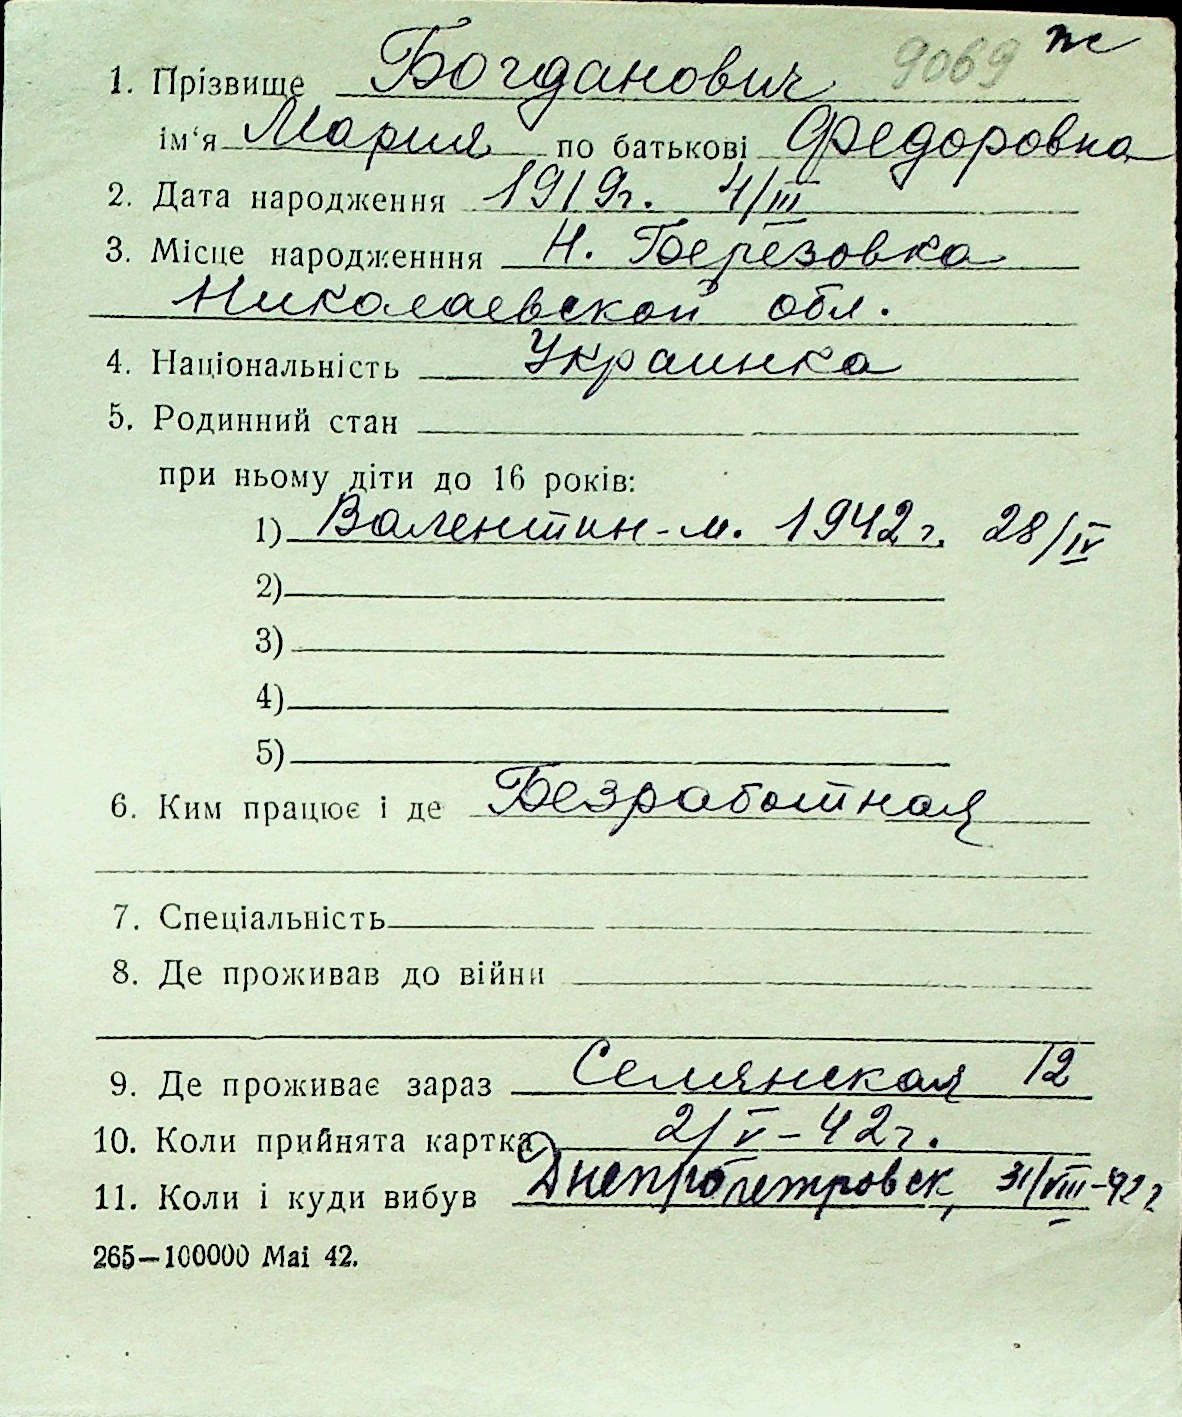 9069 ж
1. Прізвище Богданович
ім'я Мария по батькові Федоровна
2. Дата народження 1919г. 4/III
3. Місце народженння Н. Берёзовка
Николаевской обл.
4. Національність Украинка
5. Родинний стан
при ньому діти до 16 років:
1) Валентин-м. 1942 г. 28/IV
2)
3)
4)
5)
6. Ким працює і де Безработная
7. Спеціальність
8. Де проживав до війни
9. Де проживає зараз Семянская 12
10. Коли прийнята картка 2/V-42г.
11. Коли і куди вибув Днепропетровск, 31/VIII-42 г
265—100000 Mai 42.